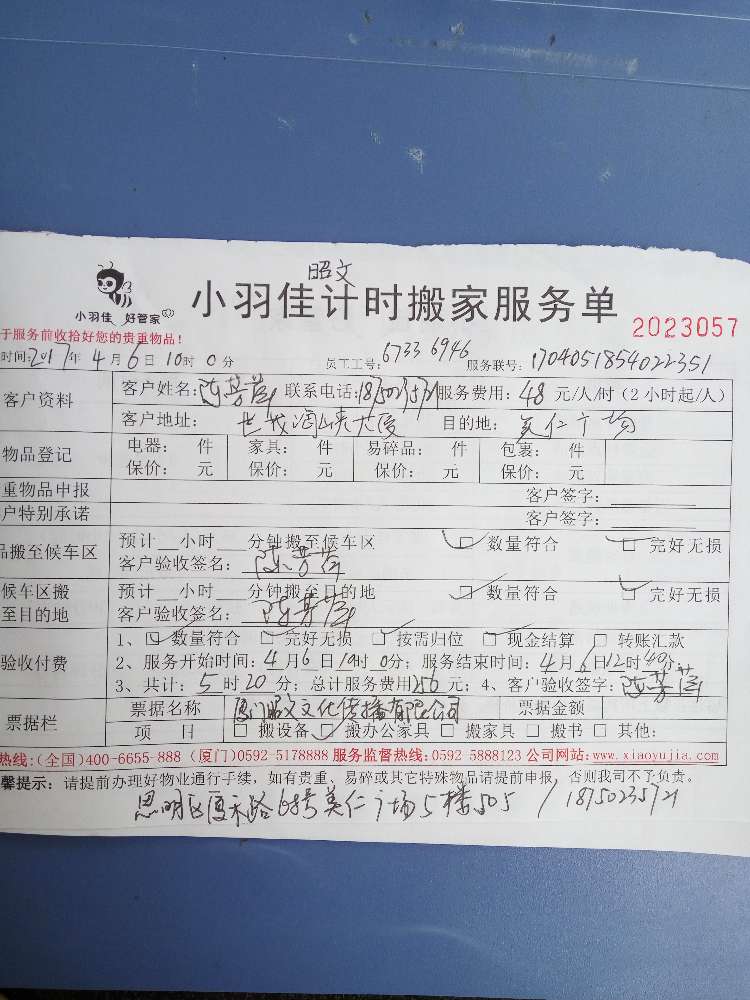 昭文
小羽佳 好管家
小羽佳计时搬家服务单
2023057
于服务前收拾好您的贵重物品!
时间:2017年4月6日10时0分 员工工号:6733 6946 服务联号:1704051854022351
客户资料 客户姓名: 联系电话:18750235721 服务费用:48元/人/时(2小时起/人)
客户地址:世茂海峡大厦 目的地:美仁广场
物品登记 电器: 件 家具: 件 易碎品: 件 包裹: 件
保价: 元 保价: 元 保价: 元 保价: 元
重物品申报 客户签字:
户特别承诺 客户签字:
品搬至候车区 预计__小时__分钟搬至候车区 数量符合 完好无损
客户验收签名:
候车区搬至目的地 预计__小时__分钟搬至目的地 数量符合 完好无损
客户验收签名:
验收付费 1、数量符合 完好无损 按需归位 现金结算 转账汇款
2、服务开始时间:4月6日10时0分;服务结束时间:4月6日12时40分
3、共计:5时20分;总计服务费用256元;4、客户验收签字:
票据栏 票据名称 厦门昭文文化传播有限公司 票据金额
项 目 搬设备 搬办公家具 搬家具 搬书 其他:
热线:(全国)400-6655-888 (厦门)0592-5178888 服务监督热线:0592-5888123 公司网站:www.xiaoyujia.com
馨提示:请提前办理好物业通行手续,如有贵重、易碎或其它特殊物品请提前申报,否则我司不予负责。
思明区厦禾路68号美仁广场5楼505 / 18750235721